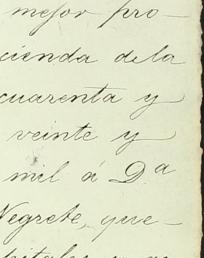 mejor pro-
cienda de la
cuarenta y
veinte y
mil á D.ª
Negrete, que-
pitales